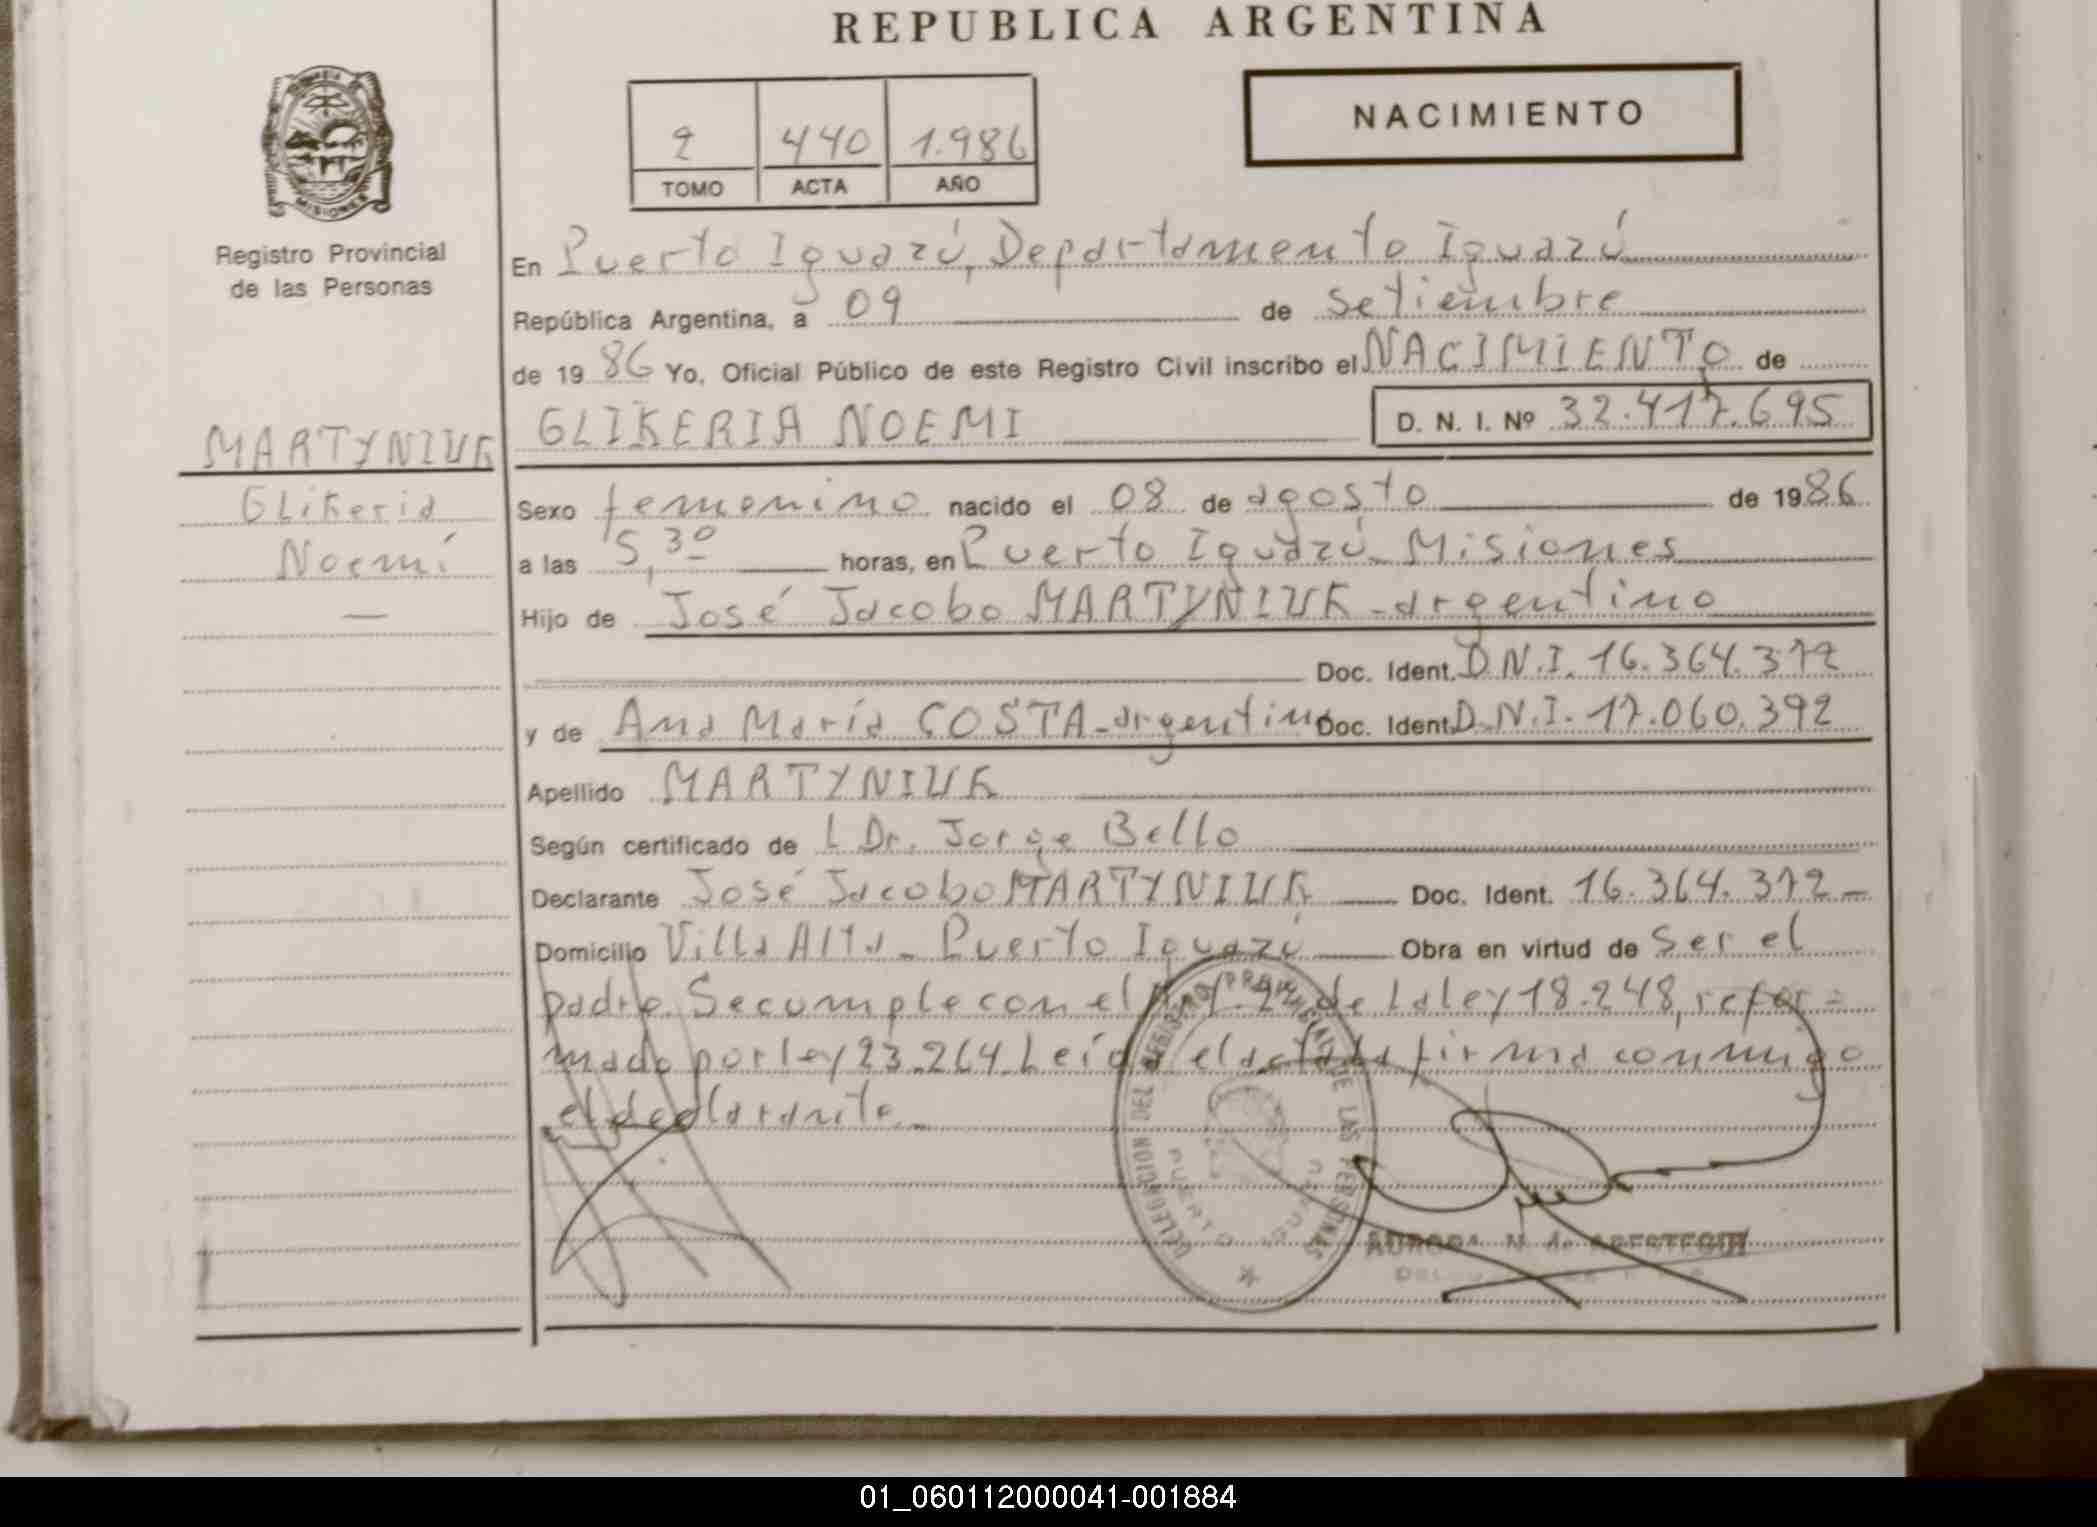 REPUBLICA ARGENTINA
NACIMIENTO
2 440 1.986
TOMO ACTA AÑO
MISIONES
Registro Provincial
de las Personas
En Puerto Iguazú, Departamento Iguazú
República Argentina, a 09 de Setiembre
de 1986 Yo, Oficial Público de este Registro Civil inscribo el NACIMIENTO de
GLIKERIA NOEMI D. N. I. Nº 32.417.695
MARTYNIUK
Glikeria
Noemí
—
Sexo femenino nacido el 08 de agosto de 1986
a las 5,30 horas, en Puerto Iguazú - Misiones
Hijo de José Jacobo MARTYNIUK - argentino
Doc. Ident. D.N.I. 16.364.372
y de Ana María COSTA - argentina Doc. Ident. D.N.I. 17.060.392
Apellido MARTYNIUK
Según certificado de l Dr. Jorge Bello
Declarante José Jacobo MARTYNIUK Doc. Ident. 16.364.372 -
Domicilio Villa Alta - Puerto Iguazú Obra en virtud de Ser el
padre. Se cumple con el Art. 2º de la ley 18.248, refor=
mado por ley 23.264. Leída el acta la firma conmigo
el declarante. -
DELEGACION DEL REGISTRO PROVINCIAL DE LAS PERSONAS
PUERTO IGUAZU
AURORA N. de
01_060112000041-001884